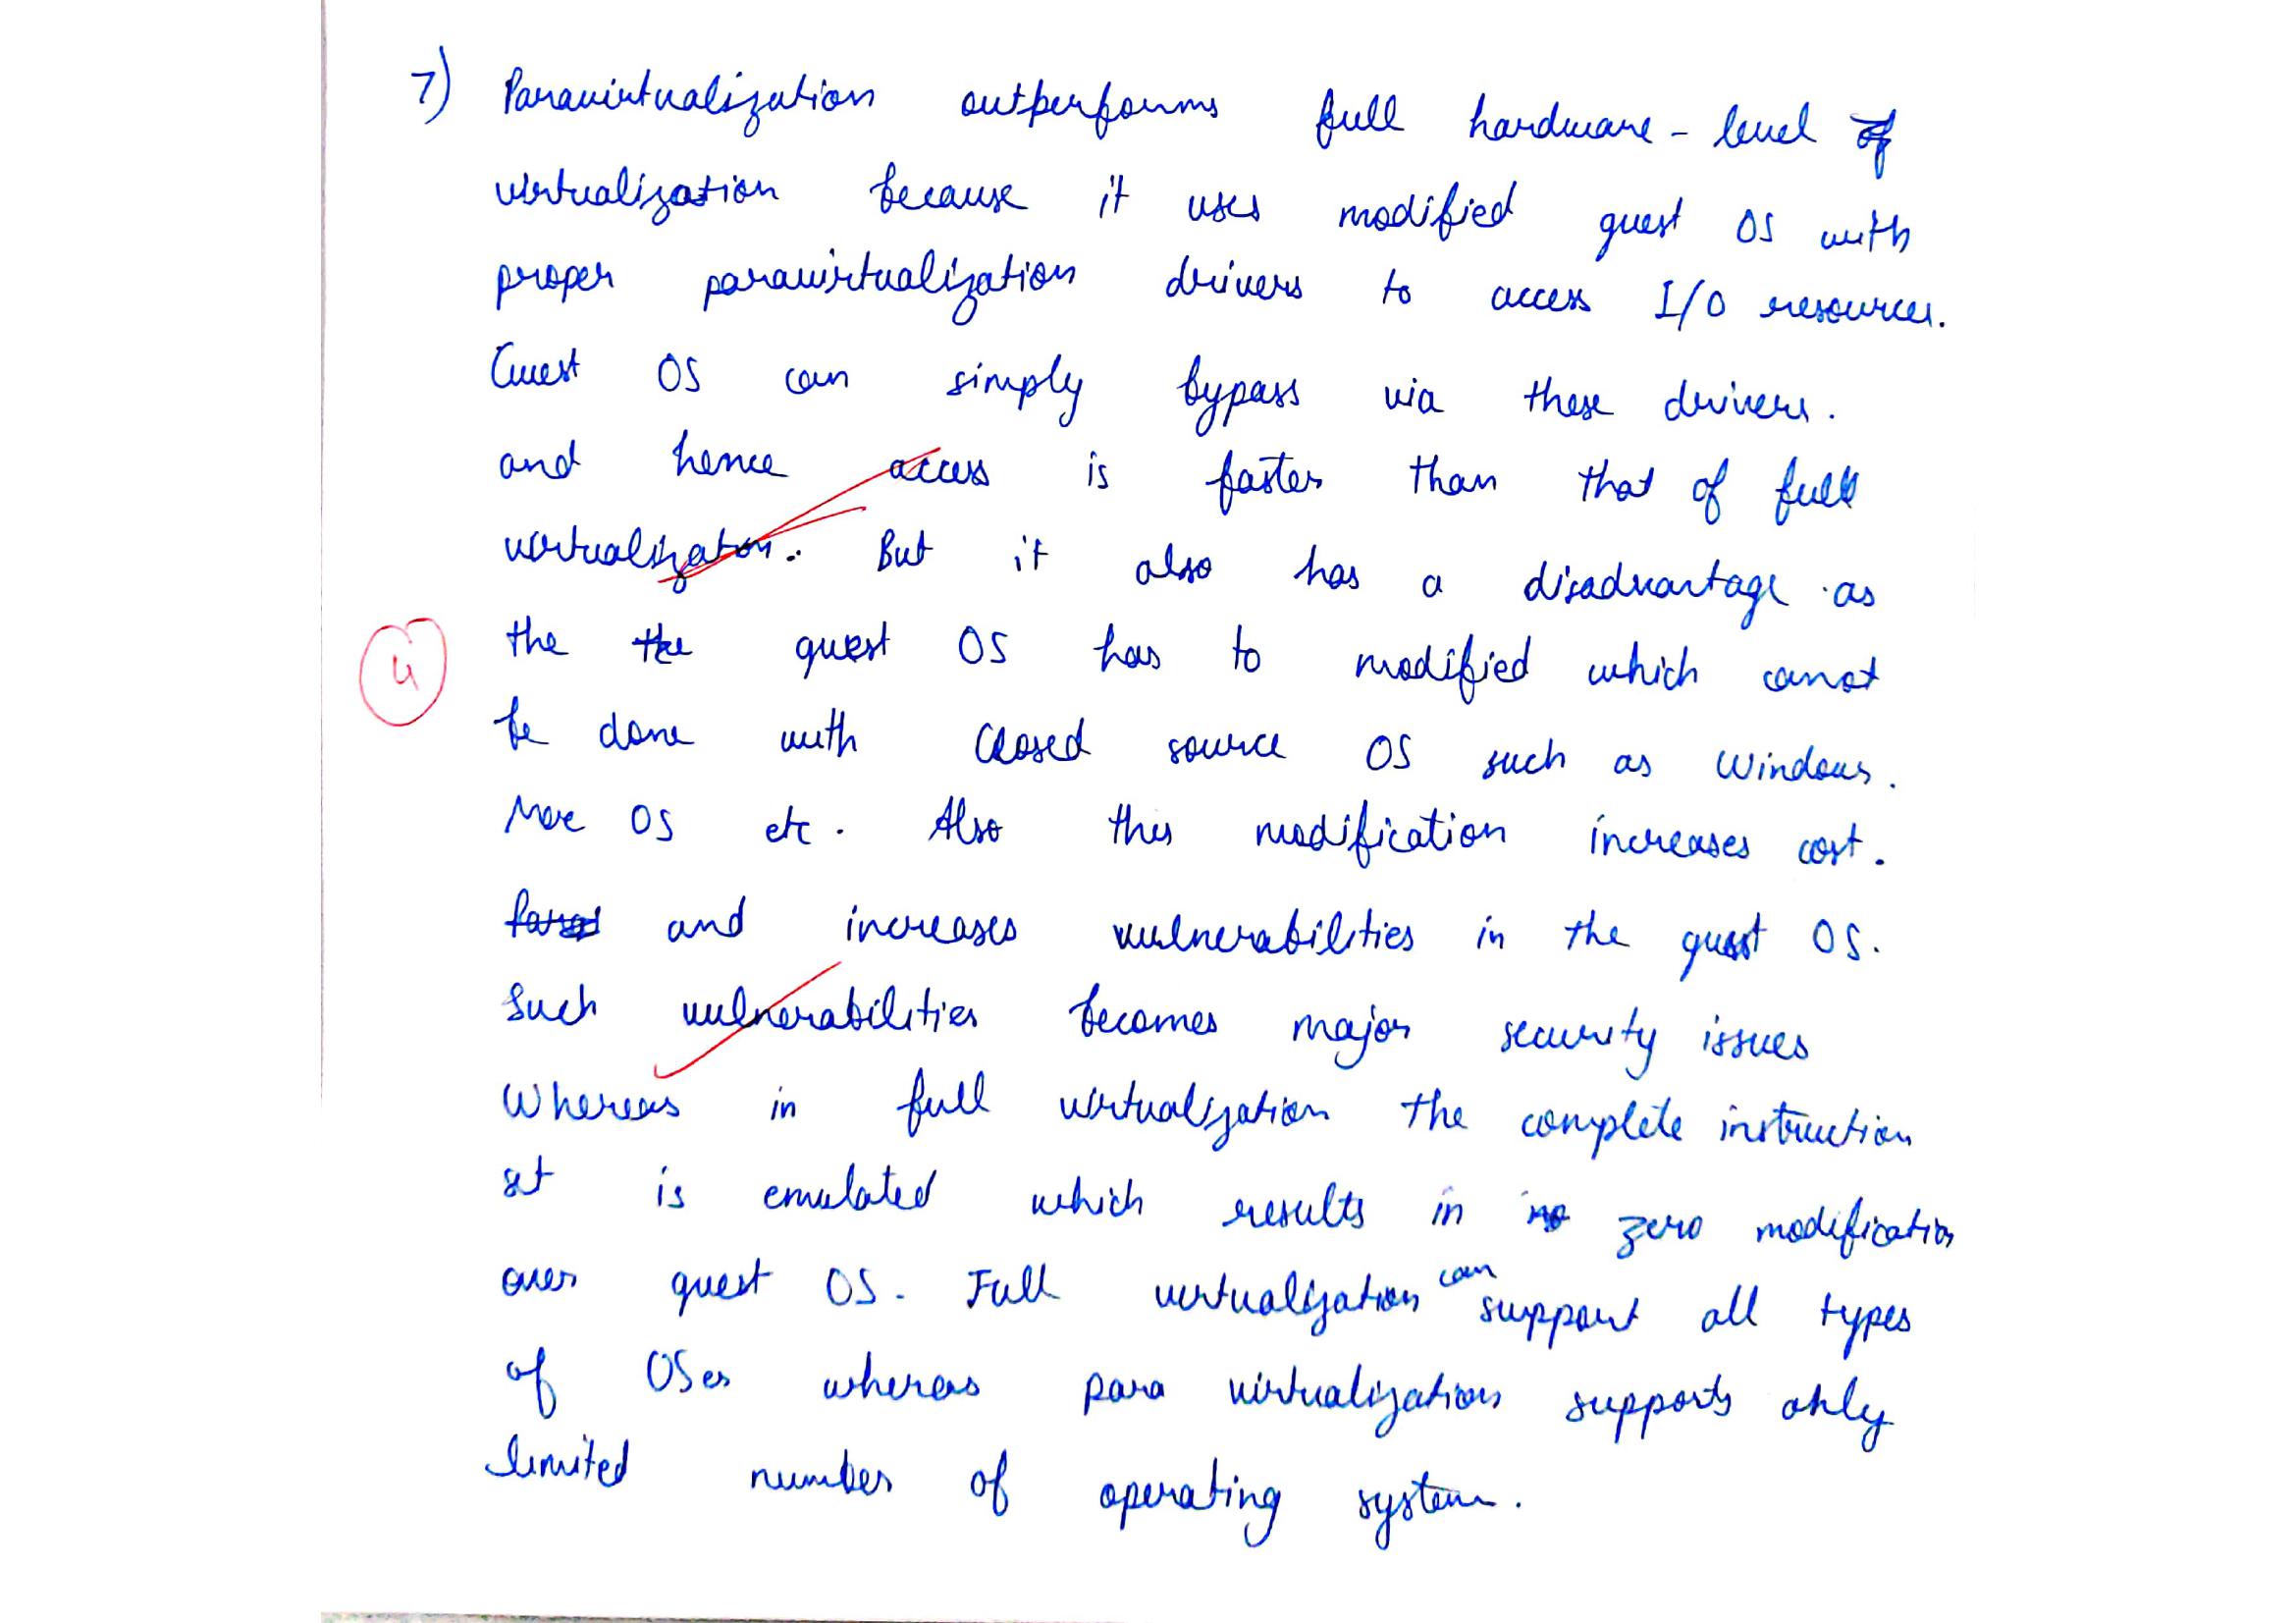 7) Paravirtualization outperforms full hardware-level of
virtualization because it uses modified guest OS with
proper paravirtualization drivers to access I/O resources.
Guest OS can simply bypass via these drivers.
and hence access is faster than that of full
virtualization. But it also has a disadvantage as
the the guest OS has to modified which canot
4
be done with closed source OS such as Windows.
Mac OS etc. Also this modification increases cost.
and increases vulnerabilities in the guest OS.
Such vulnerabilities becomes major security issues
Whereas in full virtualization the complete instruction
set is emulated which results in no zero modification
over guest OS. Full virtualization can support all types
of OSes whereas para virtualization supports only
limited number of operating system.